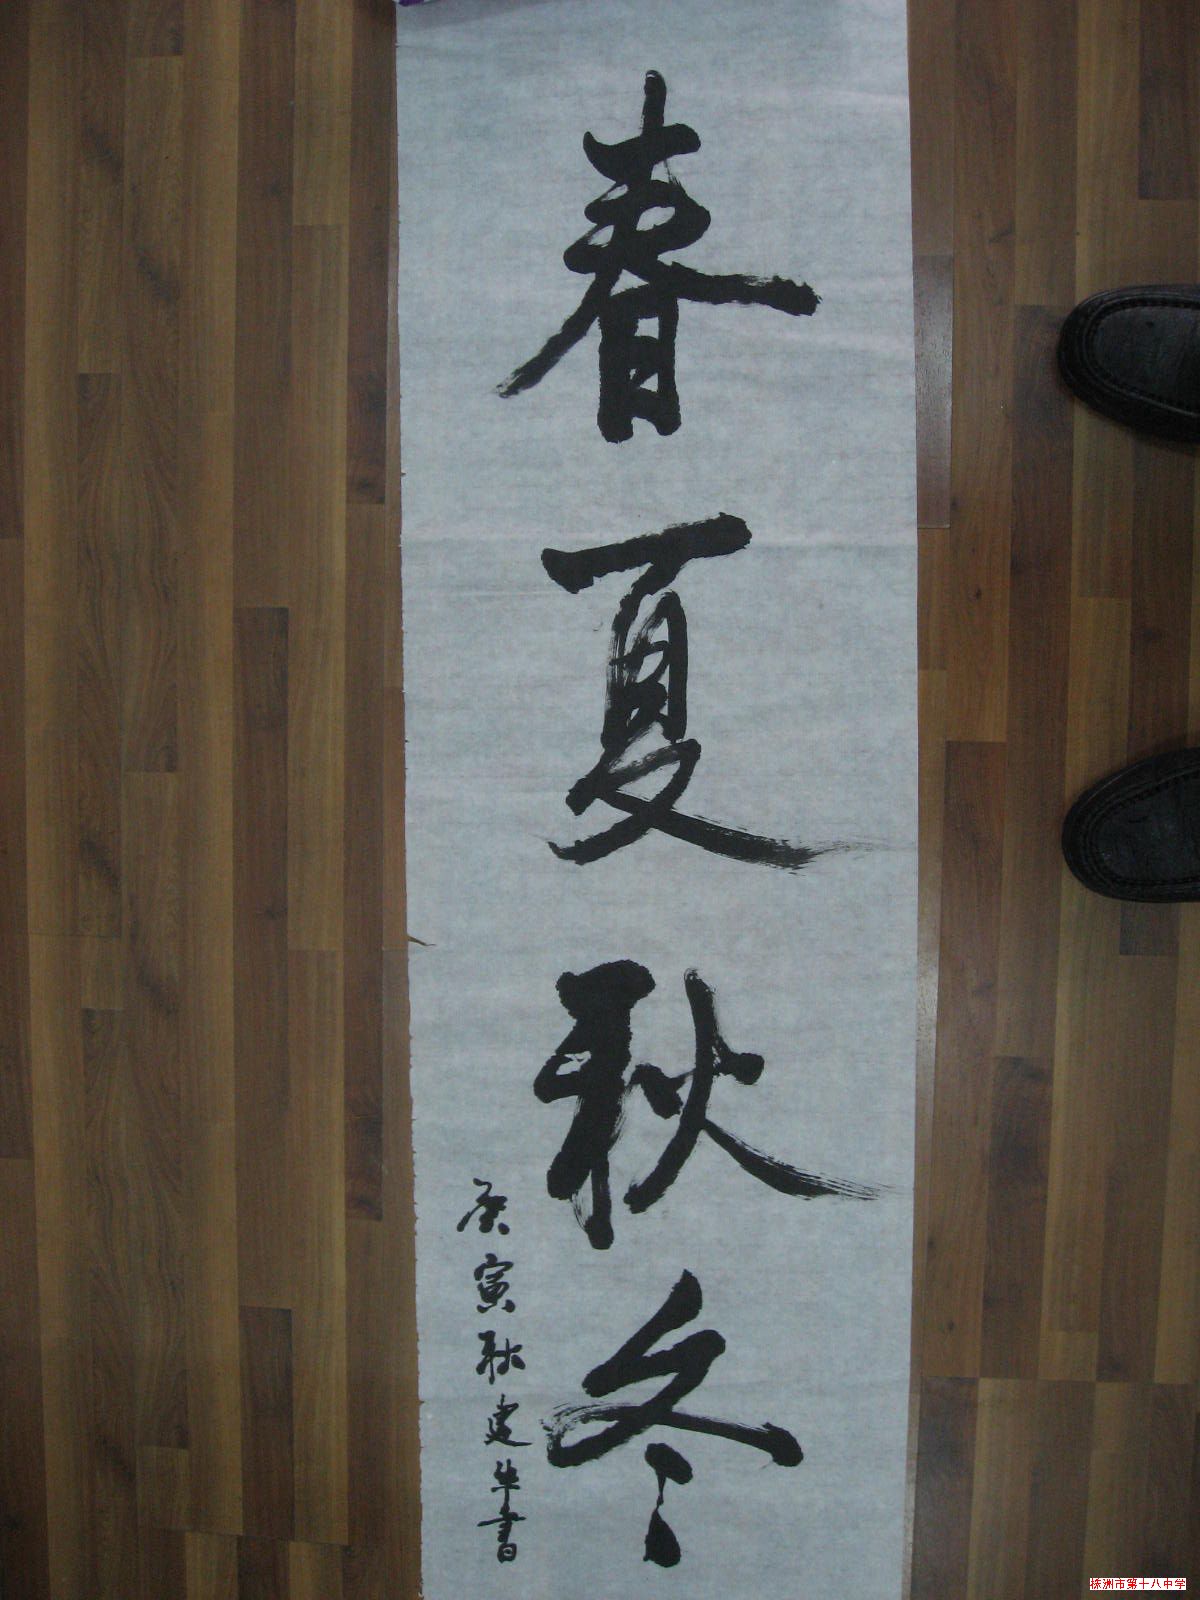 春夏秋冬
庚寅秋建华書
株洲市第十八中学